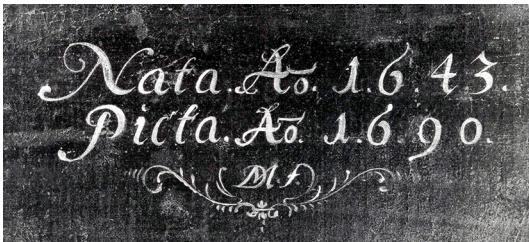 Nata. Ao. 1.6.43.
Picta. Ao. 1.6.90.
M.f.